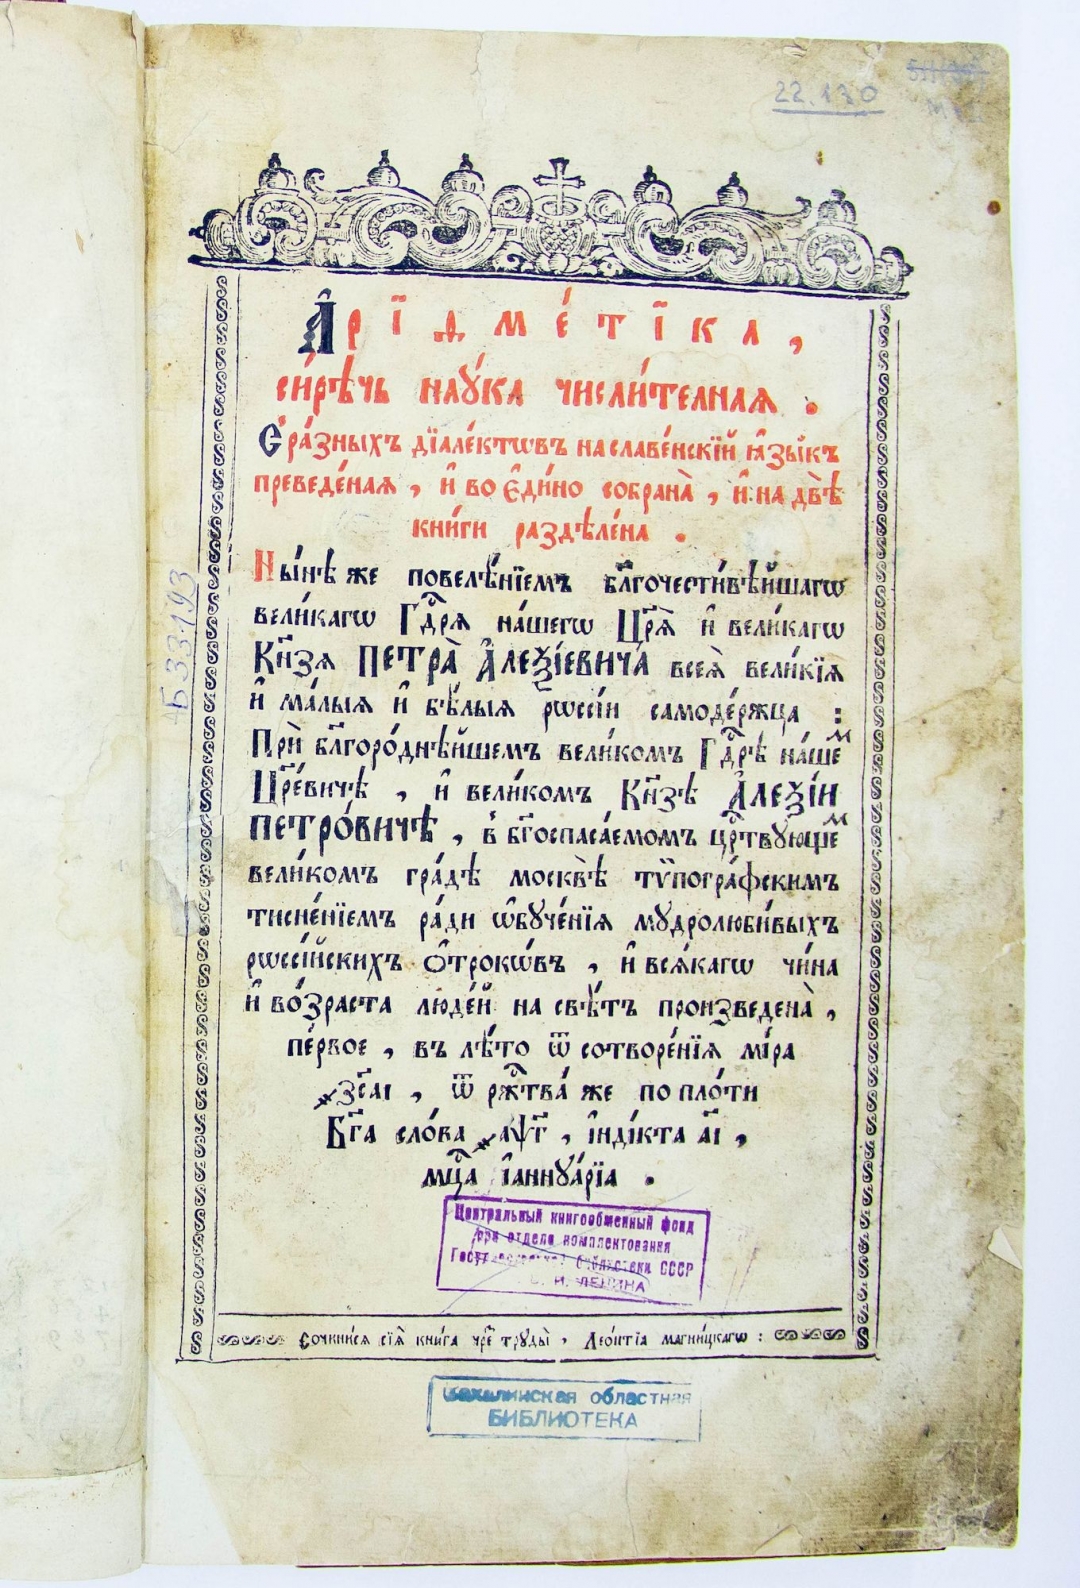 22.130
А҆рїѳме́тїка,
си́рѣчь наꙋ́ка числи́телная.
С̾ ра́зныхъ дїале́ктѡвъ на славе́нскїй ꙗ҆зы́къ
преведе́ная, и҆ во є҆ди́но собрана̀, и҆ на двѣ̀
кни́ги раздѣле́на.
Ны́нѣ же повелѣ́нїемъ бл҃гочести́вѣйшагѡ
вели́кагѡ Гдⷭ҇рѧ на́шегѡ Цр҃ѧ̀ и҆ вели́кагѡ
Кн҃зѧ ПЕТРА̀ А҆ЛЕѮІ́ЕВИЧА всеѧ̀ вели́кїѧ
и҆ ма́лыѧ и҆ бѣ́лыѧ рѡссі́и самоде́ржца :
Прѝ бл҃горо́днѣйшемъ вели́комъ Гдⷭ҇рѣ на́шеⷨ
Цр҃е́вичѣ, и҆ вели́комъ Кн҃зѣ А҆ЛЕѮІ́И
ПЕТРО́ВИЧѢ, в̾ бг҃оспаса́емомъ црⷭ҇твꙋющеⷨ
вели́комъ гра́дѣ москвѣ̀ тѵпогра́фскимъ
тисне́нїемъ ра́ди ѡ҆бꙋче́нїѧ мꙋдролюби́выхъ
рѡссі́йскихъ ѻ҆́трокѡвъ, и҆ всѧ́кагѡ чи́на
и҆ во́зраста люде́й на свѣ́тъ произведена̀,
пе́рвое, въ лѣ́то ѿ сотворе́нїѧ мі́ра
҂зс҃аі, ѿ ржⷭ҇тва́ же по пло́ти
Бг҃а сло́ва ҂аѱ҃г, і҆нді́кта а҃і,
мцⷭ҇а і҆аннꙋа́рїа.
Центральный книгообменный фонд
при отделе комплектования
Государственной библиотеки СССР
В. И. ЛЕНИНА
Сочини́сѧ сїѧ̀ кни́га чре́з трꙋды̀, Лео́нтїа магни́цкагѡ :
Сахалинская областная
БИБЛИОТЕКА
Б33.193